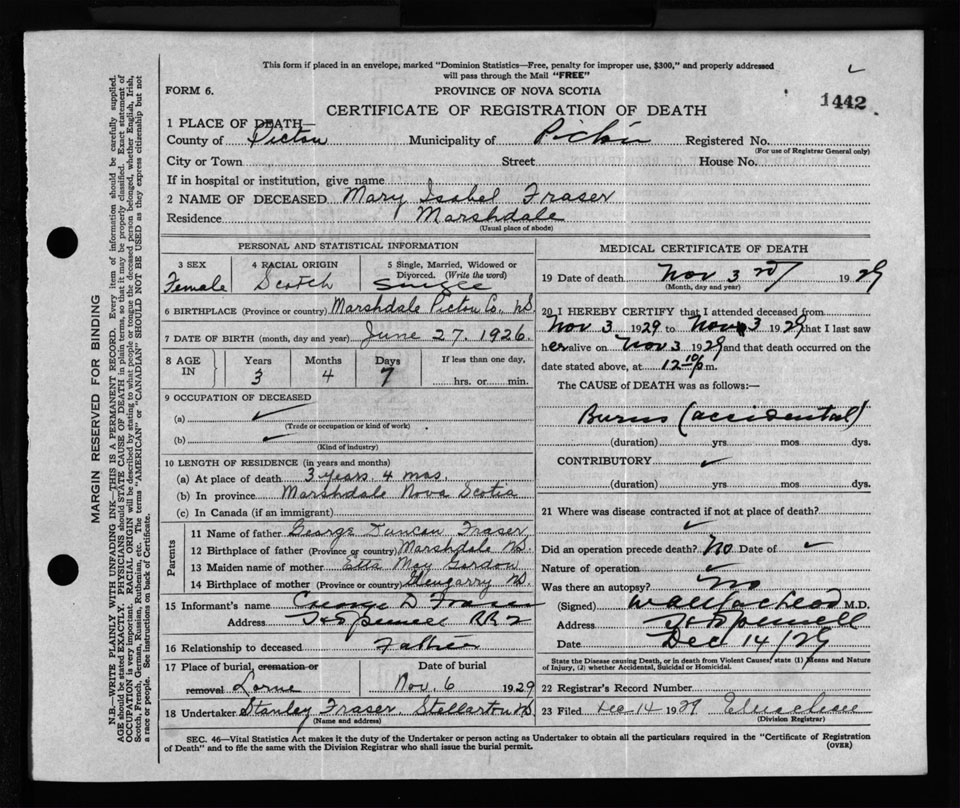 This form if placed in an envelope, marked "Dominion Statistics—Free, penalty for improper use, $300," and properly addressed
will pass through the Mail "FREE"
FORM 6.
PROVINCE OF NOVA SCOTIA
1442
CERTIFICATE OF REGISTRATION OF DEATH
1 PLACE OF DEATH—
County of Pictou Municipality of Pictou Registered No.
(For use of Registrar General only)
City or Town Street House No.
If in hospital or institution, give name
2 NAME OF DECEASED Mary Isabel Fraser
Residence Marshdale
(Usual place of abode)
PERSONAL AND STATISTICAL INFORMATION
3 SEX 4 RACIAL ORIGIN 5 Single, Married, Widowed or
Divorced. (Write the word)
Female Scotch Single
6 BIRTHPLACE (Province or country) Marshdale Pictou Co., N.S.
7 DATE OF BIRTH (month, day and year) June 27. 1926.
8 AGE IN Years Months Days If less than one day,
3 4 7 hrs. or min.
9 OCCUPATION OF DECEASED
(a) ✓
(Trade or occupation or kind of work)
(b) ✓
(Kind of industry)
10 LENGTH OF RESIDENCE (in years and months)
(a) At place of death 3 years. 4 mos
(b) In province Marshdale Nova Scotia
(c) In Canada (if an immigrant)
Parents
11 Name of father George Duncan Fraser
12 Birthplace of father (Province or country) Marshdale N.S.
13 Maiden name of mother Etta May Gordon
14 Birthplace of mother (Province or country) Glengarry N.S.
15 Informant's name George D Fraser
Address RR 2
16 Relationship to deceased Father
17 Place of burial, cremation or Date of burial
removal Lorne Nov. 6 1929
18 Undertaker Stanley Fraser. Stellarton N.S.
(Name and address)
MEDICAL CERTIFICATE OF DEATH
19 Date of death Nov 3rd 1929
(Month, day and year)
20 I HEREBY CERTIFY that I attended deceased from
Nov 3 1929 to Nov 3 1929 that I last saw
her alive on Nov 3 1929 and that death occurred on the
date stated above, at 12 10/ p.m.
The CAUSE of DEATH was as follows:—
Burns (accidental)
(duration) yrs mos dys.
CONTRIBUTORY ✓
(duration) yrs. mos. dys.
21 Where was disease contracted if not at place of death?
✓
Did an operation precede death? No Date of ✓
Nature of operation ✓
Was there an autopsy? No
(Signed) M.D.
Address
Date Dec 14/29
State the Disease causing Death, or in death from Violent Causes, state (1) Means and Nature
of Injury, (2) whether Accidental, Suicidal or Homicidal.
22 Registrar's Record Number
23 Filed Dec 14 1929
(Division Registrar)
SEC. 46—Vital Statistics Act makes it the duty of the Undertaker or person acting as Undertaker to obtain all the particulars required in the "Certificate of Registration
of Death" and to file the same with the Division Registrar who shall issue the burial permit.
(OVER)
MARGIN RESERVED FOR BINDING
N.B.—WRITE PLAINLY WITH UNFADING INK—THIS IS A PERMANENT RECORD. Every item of information should be carefully supplied.
AGE should be stated EXACTLY. PHYSICIANS should STATE CAUSE OF DEATH in plain terms, so that it may be properly classified. Exact statement of
OCCUPATION is very important. RACIAL ORIGIN will be described by stating to what people or tongue the deceased person belonged, whether English, Irish,
Scotch, French, German, Russian, Ruthenian, etc. The terms "AMERICAN" or "CANADIAN" SHOULD NOT BE USED as they express citizenship but not
a race or people. See instructions on back of Certificate.